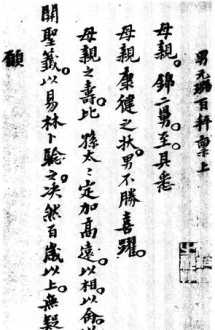 男元瑞百拜稟上
母親。錦二舅至。具悉
母親康健之狀。男不勝喜躍。
母親之壽。比孫太太定加高遠。以相以命
關聖籤。以易林卜驗之。決然百歲以上。無疑
願